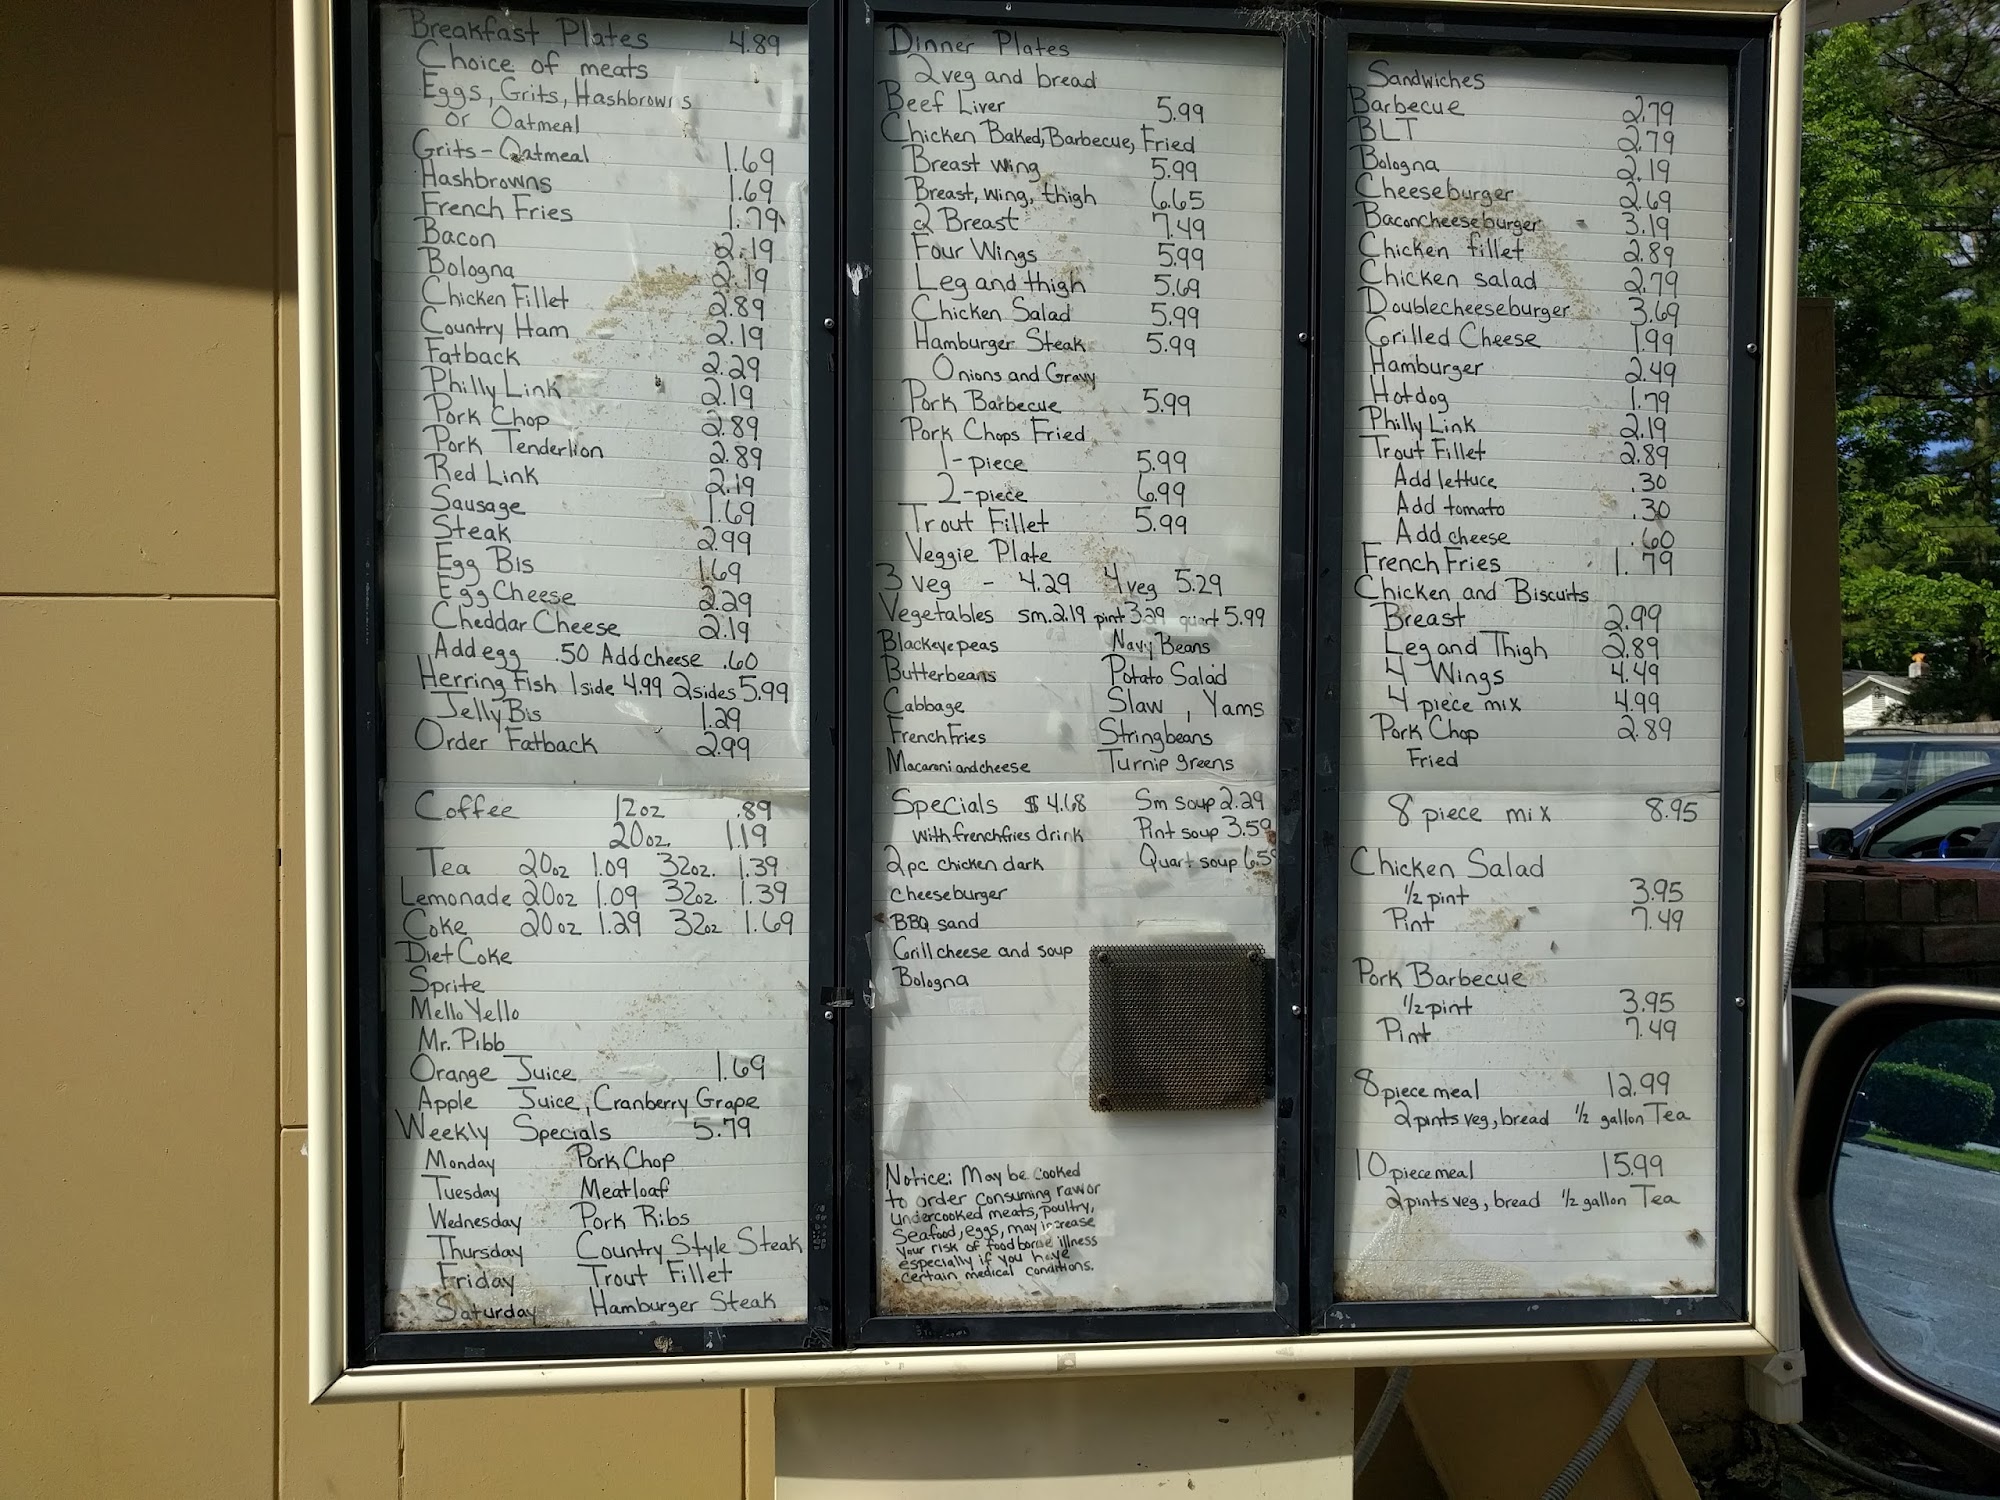 Breakfast Plates 4.89
Choice of meats
Eggs, Grits, Hashbrowns
or Oatmeal
Grits-Oatmeal 1.69
Hashbrowns 1.69
French Fries 1.79
Bacon 2.19
Bologna 2.19
Chicken Fillet 2.89
Country Ham 2.19
Fatback 2.29
Philly Link 2.19
Pork Chop 2.89
Pork Tenderlion 2.89
Red Link 2.19
Sausage 1.69
Steak 2.99
Egg Bis 1.69
Egg Cheese 2.29
Cheddar Cheese 2.19
Add egg .50 Add cheese .60
Herring Fish 1 side 4.99 2 sides 5.99
Jelly Bis 1.29
Order Fatback 2.99
Coffee 12oz .89
20oz. 1.19
Tea 20oz 1.09 32oz. 1.39
Lemonade 20oz 1.09 32oz. 1.39
Coke 20oz 1.29 32oz 1.69
Diet Coke
Sprite
Mello Yello
Mr. Pibb
Orange Juice 1.69
Apple Juice, Cranberry Grape
Weekly Specials 5.79
Monday Pork Chop
Tuesday Meatloaf
Wednesday Pork Ribs
Thursday Country Style Steak
Friday Trout Fillet
Saturday Hamburger Steak
Dinner Plates
2 veg and bread
Beef Liver 5.99
Chicken Baked, Barbecue, Fried
Breast wing 5.99
Breast, wing, thigh 6.65
2 Breast 7.49
Four Wings 5.99
Leg and thigh 5.69
Chicken Salad 5.99
Hamburger Steak 5.99
Onions and Gravy
Pork Barbecue 5.99
Pork Chops Fried
1-piece 5.99
2-piece 6.99
Trout Fillet 5.99
Veggie Plate
3 veg - 4.29 4 veg 5.29
Vegetables sm. 2.19 pint 3.29 quart 5.99
Blackeyepeas Navy Beans
Butterbeans Potato Salad
Cabbage Slaw, Yams
French Fries Stringbeans
Macaroni and cheese Turnip greens
Specials $4.68 Sm soup 2.29
with frenchfries drink Pint soup 3.59
2pc chicken dark Quart soup 6.59
cheeseburger
BBQ sand
Grill cheese and soup
Bologna
Notice: May be cooked
to order consuming raw or
undercooked meats, poultry,
seafood, eggs, may increase
your risk of foodborne illness
especially if you have
certain medical conditions.
Sandwiches
Barbecue 2.79
BLT 2.79
Bologna 2.19
Cheeseburger 2.69
Baconcheeseburger 3.19
Chicken fillet 2.89
Chicken salad 2.79
Doublecheeseburger 3.69
Grilled Cheese 1.99
Hamburger 2.49
Hotdog 1.79
Philly Link 2.19
Trout Fillet 2.89
Add lettuce .30
Add tomato .30
Add cheese .60
French Fries 1.79
Chicken and Biscuits
Breast 2.99
Leg and Thigh 2.89
4 Wings 4.49
4 piece mix 4.99
Pork Chop 2.89
Fried
8 piece mix 8.95
Chicken Salad
1/2 pint 3.95
Pint 7.49
Pork Barbecue
1/2 pint 3.95
Pint 7.49
8 piece meal 12.99
2 pints veg, bread 1/2 gallon Tea
10 piece meal 15.99
2 pints veg, bread 1/2 gallon Tea